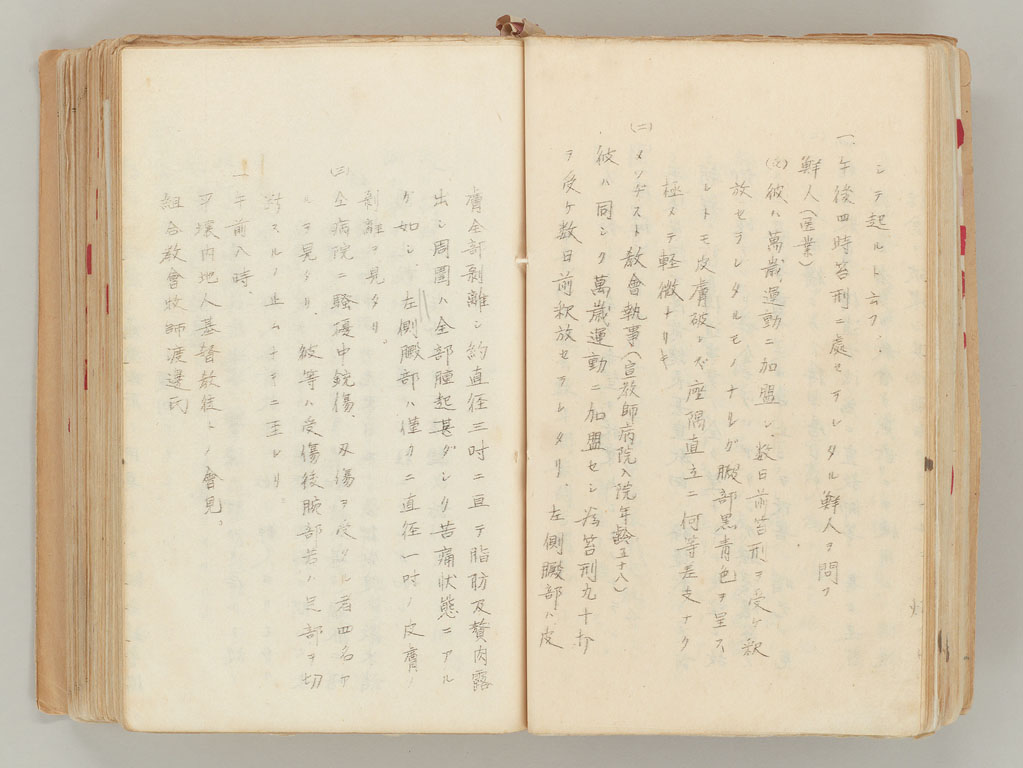 シテ起ルト云フ.
一、午後四時笞刑ニ處セラレタル鮮人ヲ問フ
鮮人(医業)
彼ハ萬歳運動ニ加盟シ、数日前笞刑ヲ受ケ釈
放セラレタルモノナルガ臀部黒青色ヲ呈ス
レトモ皮膚破レズ座隅直立ニ何等差支ナク
極メテ軽微ナリキ
(二)メソヂスト教會執事(宣教師病院入院年齢五十八)
彼ハ同シク萬歳運動ニ加盟セシ為笞刑九十打
ヲ受ケ数日前釈放セラレタリ、左側臀部ハ皮
膚全部剥離シ約直径三吋ニ亘テ脂肪及贅肉露
出シ周圍ハ全部腫起甚ダシク苦痛状態ニアル
ガ如シ 左側臀部ハ僅カニ直径一吋ノ皮膚ノ
剥離ヲ見タリ。
(三)全病院ニ騒擾中銃傷、刄傷ヲ受タル者四名ケ
ルヲ見タリ、彼等ハ受傷後腕部若ハ足部ヲ切
スルノ止ムナキニ至レリ
一、午前八時、
平壌内地人基督教徒トノ會見、
組合教會牧師渡邊